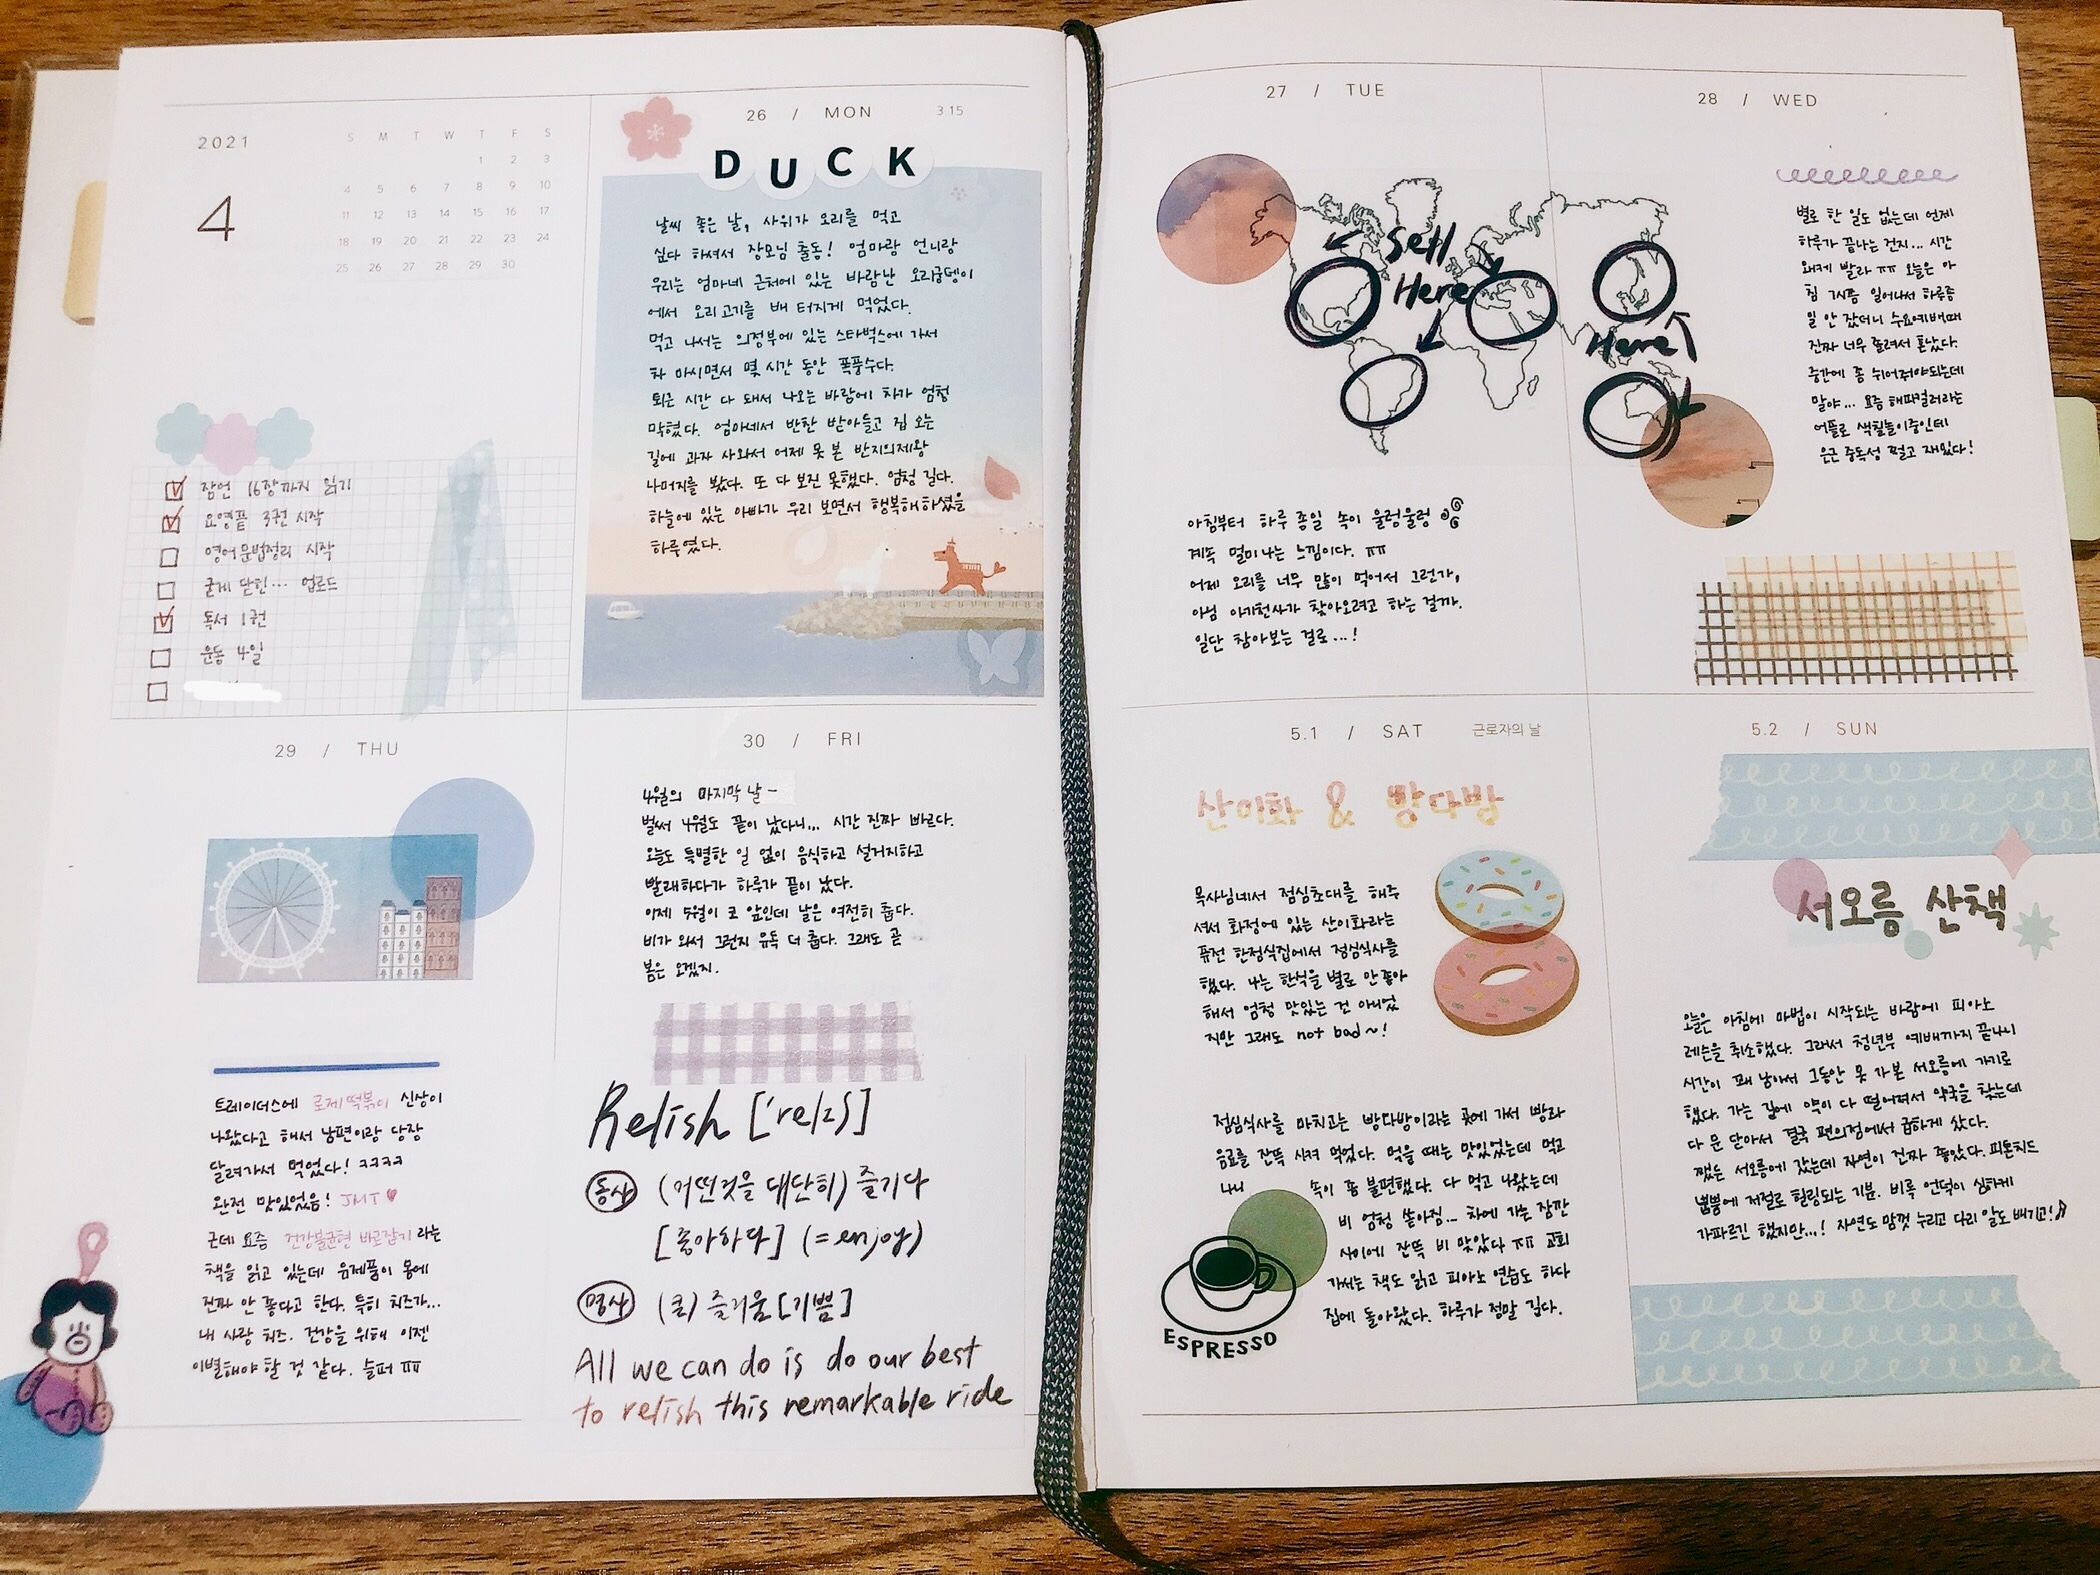 2021
4
S M T W T F S
1 2 3
4 5 6 7 8 9 10
11 12 13 14 15 16 17
18 19 20 21 22 23 24
25 26 27 28 29 30
잠언 16장까지 읽기
요영끝 3권 시작
영어문법정리 시작
굳게 닫힌... 업로드
독서 1권
운동 4일
26 / MON 3.15
DUCK
날씨 좋은 날, 사위가 오리를 먹고
싶다 하셔서 장모님 출동! 엄마랑 언니랑
우리는 엄마네 근처에 있는 바람난 오리궁뎅이
에서 오리고기를 배 터지게 먹었다.
먹고 나서는 의정부에 있는 스타벅스에 가서
차 마시면서 몇 시간 동안 폭풍수다.
퇴근 시간 다 돼서 나오는 바람에 차가 엄청
막혔다. 엄마네서 반찬 받아들고 집 오는
길에 과자 사와서 어제 못 본 반지의제왕
나머지를 봤다. 또 다 보진 못했다. 엄청 길다.
하늘에 있는 아빠가 우리 보면서 행복해하셨을
하루였다.
29 / THU
트레이더스에 로제떡볶이 신상이
나왔다고 해서 남편이랑 당장
달려가서 먹었다! ㅋㅋㅋㅋ
완전 맛있었음! JMT
근데 요즘 건강불균형 바로잡기 라는
책을 읽고 있는데 유제품이 몸에
진짜 안 좋다고 한다. 특히 치즈가...
내 사랑 치즈. 건강을 위해 이젠
이별해야 할 것 같다. 슬퍼 ㅠㅠ
30 / FRI
4월의 마지막 날~
벌써 4월도 끝이 났다니... 시간 진짜 빠르다.
오늘도 특별한 일 없이 음식하고 설거지하고
빨래하다가 하루가 끝이 났다.
이제 5월이 코 앞인데 날은 여전히 춥다.
비가 와서 그런지 유독 더 춥다. 그래도 곧
봄은 오겠지.
Relish ['relɪʃ]
동사 (어떤것을 대단히) 즐기다
[좋아하다] (=enjoy)
명사 (큰) 즐거움[기쁨]
All we can do is do our best
to relish this remarkable ride
27 / TUE
Sell
Here
Here
아침부터 하루 종일 속이 울렁울렁
계속 멀미나는 느낌이다. ㅠㅠ
어제 오리를 너무 많이 먹어서 그런가,
아님 아기천사가 찾아오려고 하는 걸까.
일단 참아보는 걸로...!
28 / WED
별로 한 일도 없는데 언제
하루가 끝나는 건지... 시간
왜케 빨라 ㅠㅠ 오늘은 아
침 7시쯤 일어나서 하루종
일 안 잤더니 수요예배때
진짜 너무 졸려서 혼났다.
중간에 좀 쉬어줘야되는데
말야... 요즘 해피컬러라는
어플로 색칠놀이중인데
은근 중독성 쩔고 재밌다!
5.1 / SAT 근로자의 날
산이화 & 빵다방
목사님네서 점심초대를 해주
셔서 화정에 있는 산이화라는
퓨전 한정식집에서 점심식사를
했다. 나는 한식을 별로 안좋아
해서 엄청 맛있는 건 아니었
지만 그래도 not bad~!
점심식사를 마치고는 빵다방이라는 곳에 가서 빵과
음료를 잔뜩 시켜 먹었다. 먹을 때는 맛있었는데 먹고
나니 속이 좀 불편했다. 다 먹고 나왔는데
비 엄청 쏟아짐... 차에 가는 잠깐
사이에 잔뜩 비 맞았다 ㅠㅠ 교회
가서는 책도 읽고 피아노 연습도 하다
집에 돌아왔다. 하루가 정말 길다.
ESPRESSO
5.2 / SUN
서오릉 산책
오늘은 아침에 마법이 시작되는 바람에 피아노
레슨을 취소했다. 그래서 청년부 예배까지 끝나니
시간이 꽤 남아서 그동안 못 가본 서오릉에 가기로
했다. 가는 길에 약이 다 떨어져서 약국을 찾는데
다 문 닫아서 결국 편의점에서 급하게 샀다.
쨌든 서오릉에 갔는데 자연이 진짜 좋았다. 피톤치드
뿜뿜에 저절로 힐링되는 기분. 비록 언덕이 심하게
가파르긴 했지만...! 자연도 맘껏 누리고 다리 알도 배기고!